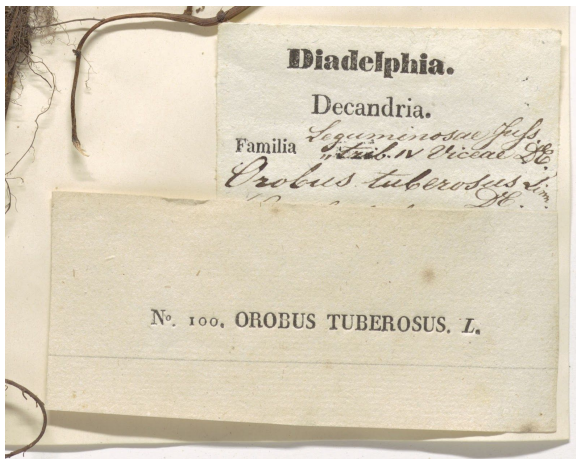 Diadelphia.
Decandria.
Familia Leguminosae Juss
„ trib. IV Viceae DC.
Orobus tuberosus Linn.
DC.
No. 100. OROBUS TUBEROSUS. L.